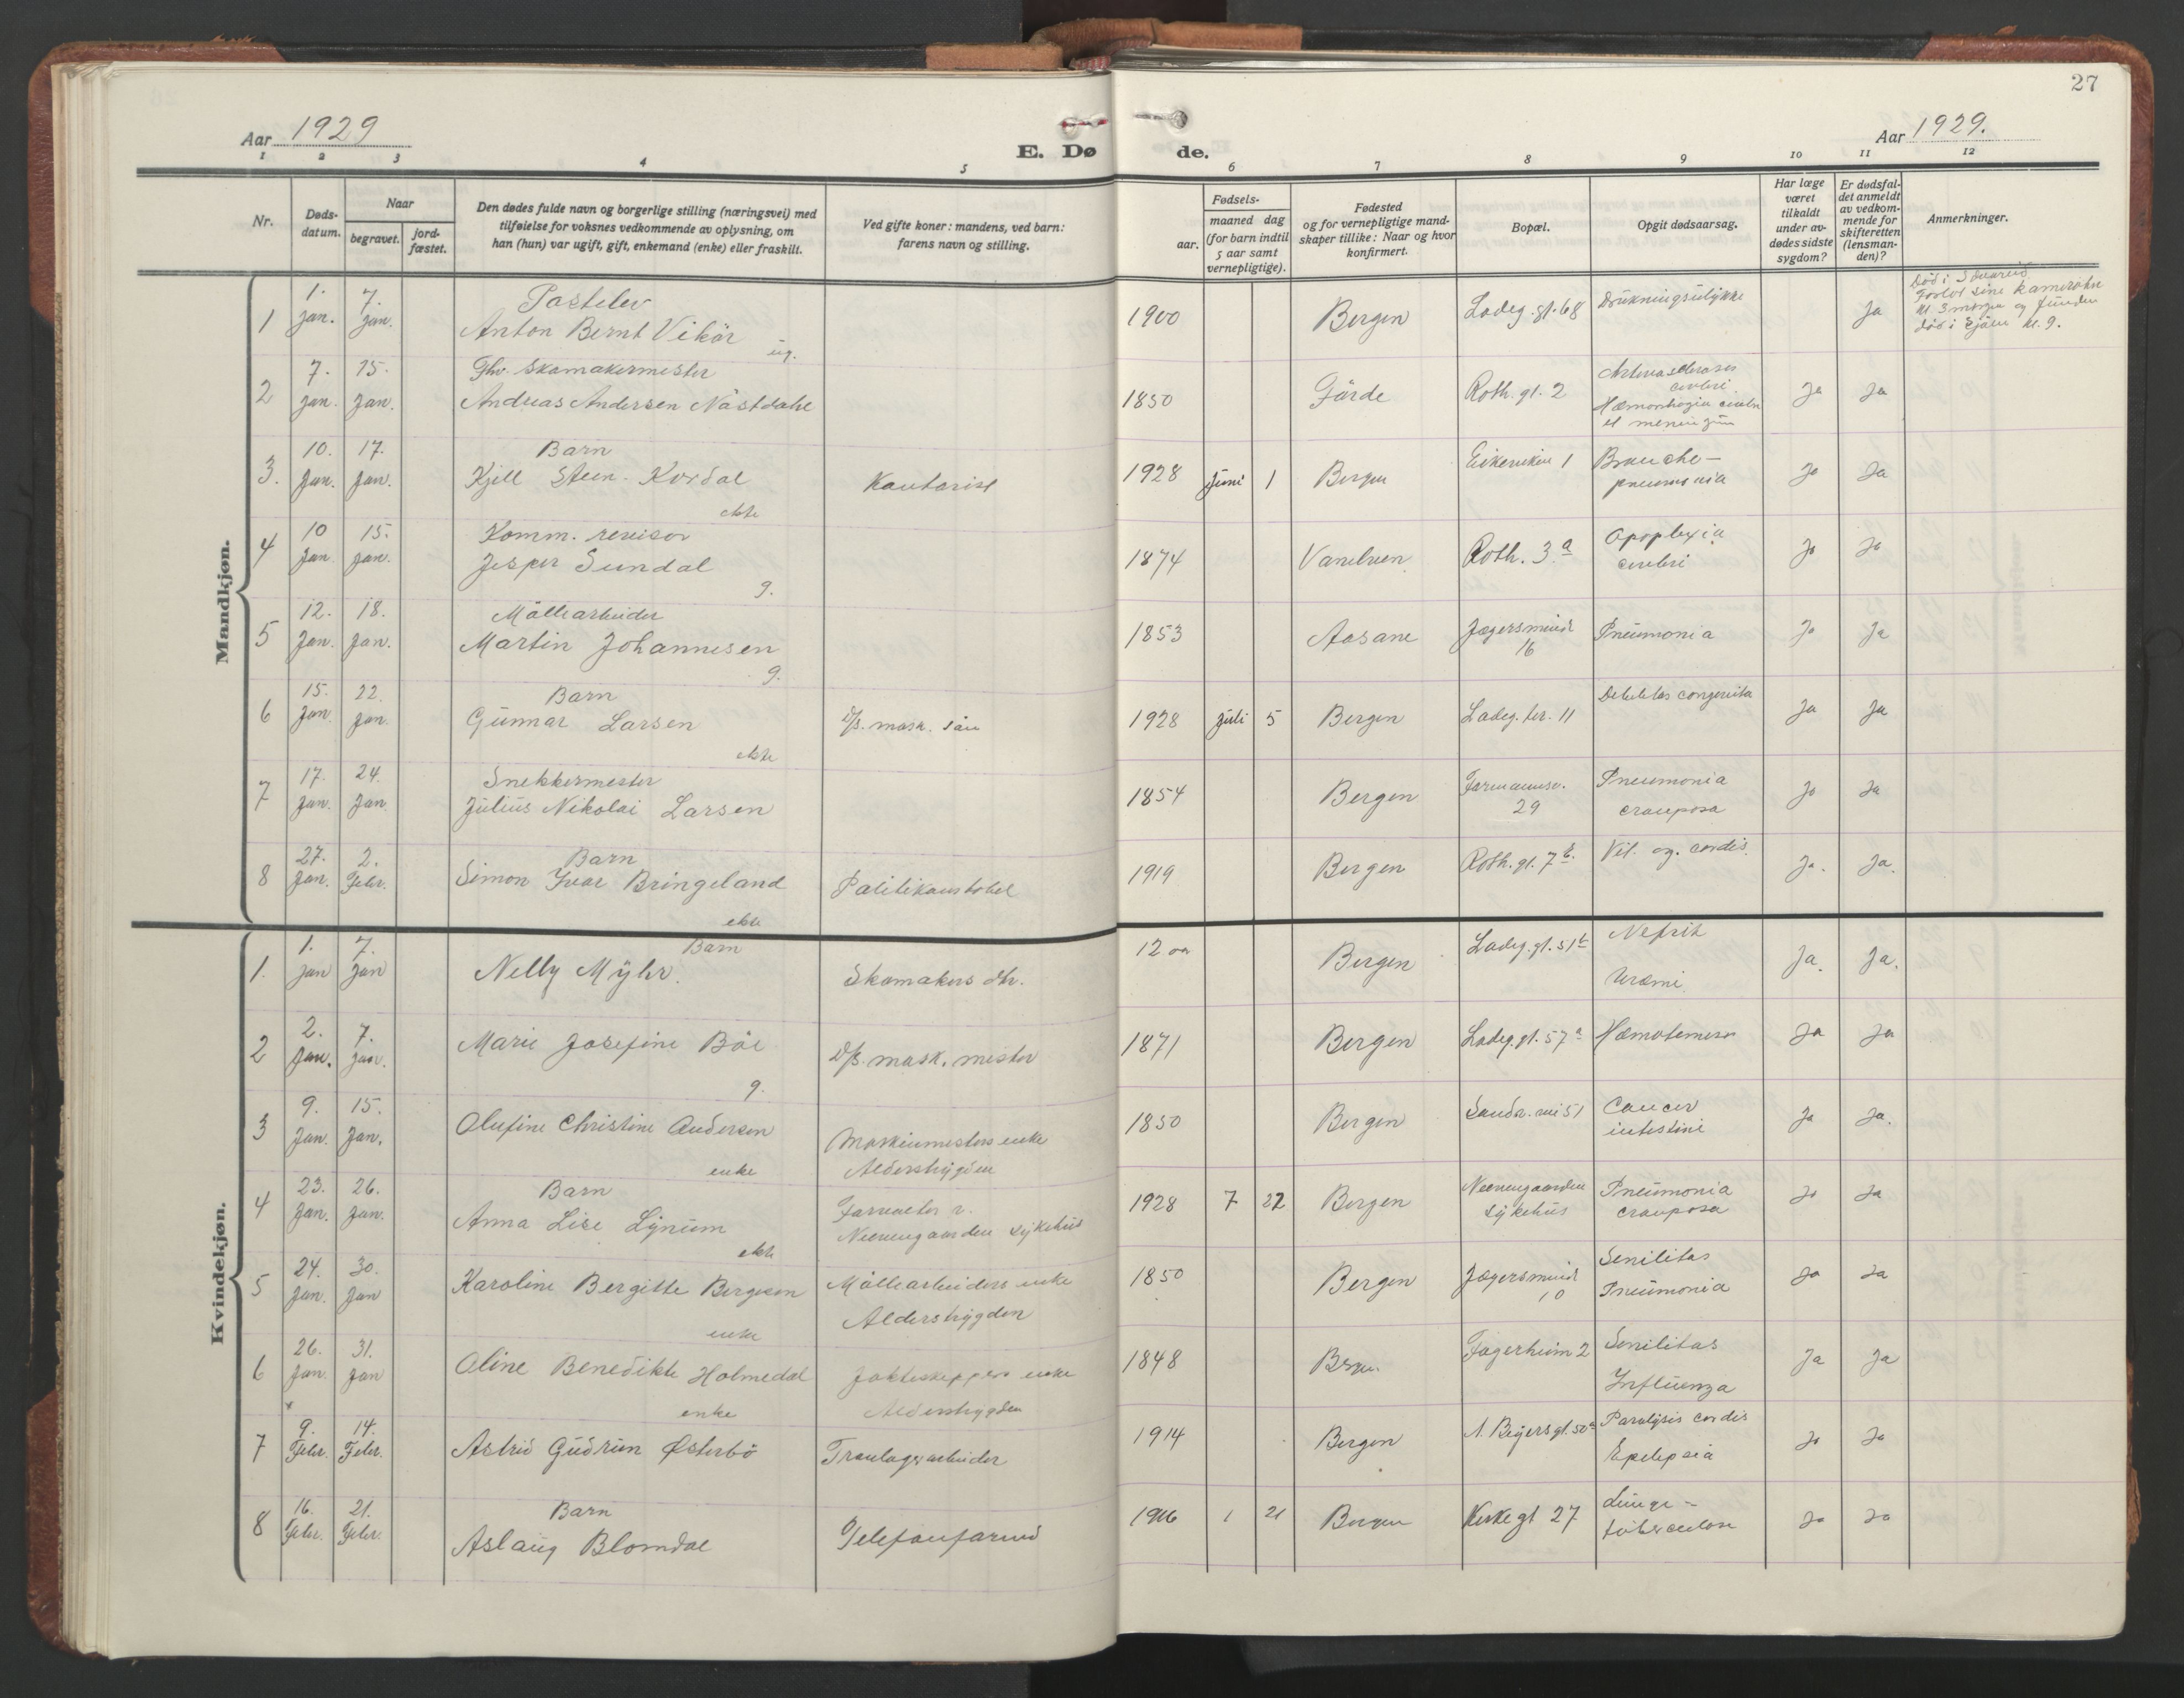 27
Aar 1929
Aar 1929.
E. Dø
de.
1 2 3 4 5 6 7 8 9 10 11 12
Nr.
Døds-
datum.
Naar
begravet.
jord-
fæstet.
Den dødes fulde navn og borgerlige stilling (næringsvei) med
tilføielse for voksnes vedkommende av oplysning, om
han (hun) var ugift, gift, enkemand (enke) eller fraskilt.
Ved gifte koner: mandens, ved barn:
farens navn og stilling.
Fødsels-
aar.
maaned dag
(for barn indtil
5 aar samt
vernepligtige).
Fødested
og for vernepligtige mand-
skaper tillike: Naar og hvor
konfirmert.
Bopæl.
Opgit dødsaarsag.
Har læge
været
tilkaldt
under av-
dødes sidste
sygdom?
Er dødsfal-
det anmeldt
av vedkom-
mende for
skifteretten
(lensman-
den)?
Anmerkninger.
Mandkjøn.
1 1. Jan. 7. Jan.
Postelev
Anton Bernt Vikör
ug.
1900 Bergen Ladeg. gt. 68 Drukningsulykke Ja
Forlot sine kamerater
kl. 3 morgen og funden
död i Sjöen kl. 9.
2 7. Jan. 15. Jan.
Fhv. Skomakermester
Andreas Andersen Nåstdahl
1850 Förde Roth. gt. 2
Ja Ja
3. 10. Jan. 17. Jan.
Barn
Kjell Steen-Kordal
ekte
Kontorist
1928 Juni 1 Bergen
Broncho-
pneumonia
Ja Ja
4 10 Jan 15. Jan.
Komm. revisor
Jesper Sundal
g.
1874 Vanelven Roth. 3a
Apoplexia
cerebri
Ja Ja
5 12. Jan. 18. Jan.
Möllearbeider
Martin Johannesen
g.
1853 Aasane Jægersmind
16
Pneumonia Ja Ja
6 15. Jan 22. Jan.
Barn
Gunnar Larsen
ekte
D/s. mask. sön
1928 Juli 5 Bergen Ladeg. ter. 11 Debilitas congenita Ja Ja
7 17. Jan. 24. Jan
Snekkermester
Julius Nikolai Larsen
1854 Bergen
29
Pneumonia
crouposa
Ja Ja
8 27. Jan. 2. Febr.
Barn
Simon Ivar Bringeland
ekte
Politikonstabel
1919 Bergen Roth. gt. 7b. Vit. og. cordis. Ja. Ja.
Kvindekjøn.
1. 1. Jan 7. Jan
Barn
Nelly Myhr.
Skomakers dtr.
12 aar Bergen Ladeg. gt. 51b
Nefrit
Uræmi
Ja. Ja.
2 2. Jan. 7. Jan.
Marie Josefine Böe
g.
D/s. mask. mester
1871 Bergen Ladeg. gt. 57a Hæmatemese Ja Ja
3 9. Jan. 15. Jan.
Olufine Christine Andersen
enke
Maskinmesters enke
Alderstrygden
1850 Bergen Sandv. vei 51
Cancer
intestini
Ja Ja.
4 23. Jan. 26. Jan.
Barn
Anna Lise Lynum
ekte
Forvalter v.
Neevengaarden Sykehus
1928 7 22 Bergen
Neevengaarden
Sykehus
Pneumonia
crouposa
Ja Ja
5 24. Jan. 30. Jan
Karoline Bergitte Bergesen
enke
Möllearbeiders enke
Alderstrygden
1850 Bergen Jægersmind
10
Senilitas
Pneumonia
Ja Ja
6 26. Jan. 31. Jan
Oline Benedikte Holmedal
enke
Jakteskippers enke
Alderstrygden
1848 Bergen Fagerheim 2
Senilitas
Influenza
Ja Ja
7 9. Febr. 14. Febr.
Astrid Gudrun Østerbö
Tranlagerarbeider
1914 Bergen A. Beyersgt. 50a
Paralysis cordis
Epelepsia
Ja Ja
8 16. Febr. 21. Febr.
Barn
Aslaug Blomdal
Telefonformd
1916 1 21 Bergen Kirkegt 27
Lunge-
tuberculose
Ja Ja